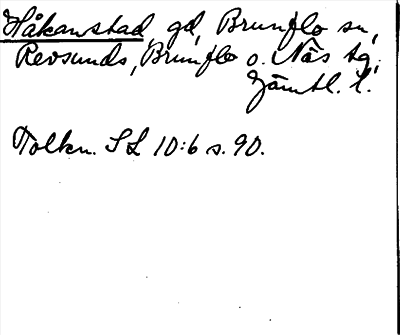 Håkanstad, gd, Brunflo sn,
Revsunds, Brunflo o. Näs tg,
Jämtl. l.
Tolkn. SL 10:6 s. 90.